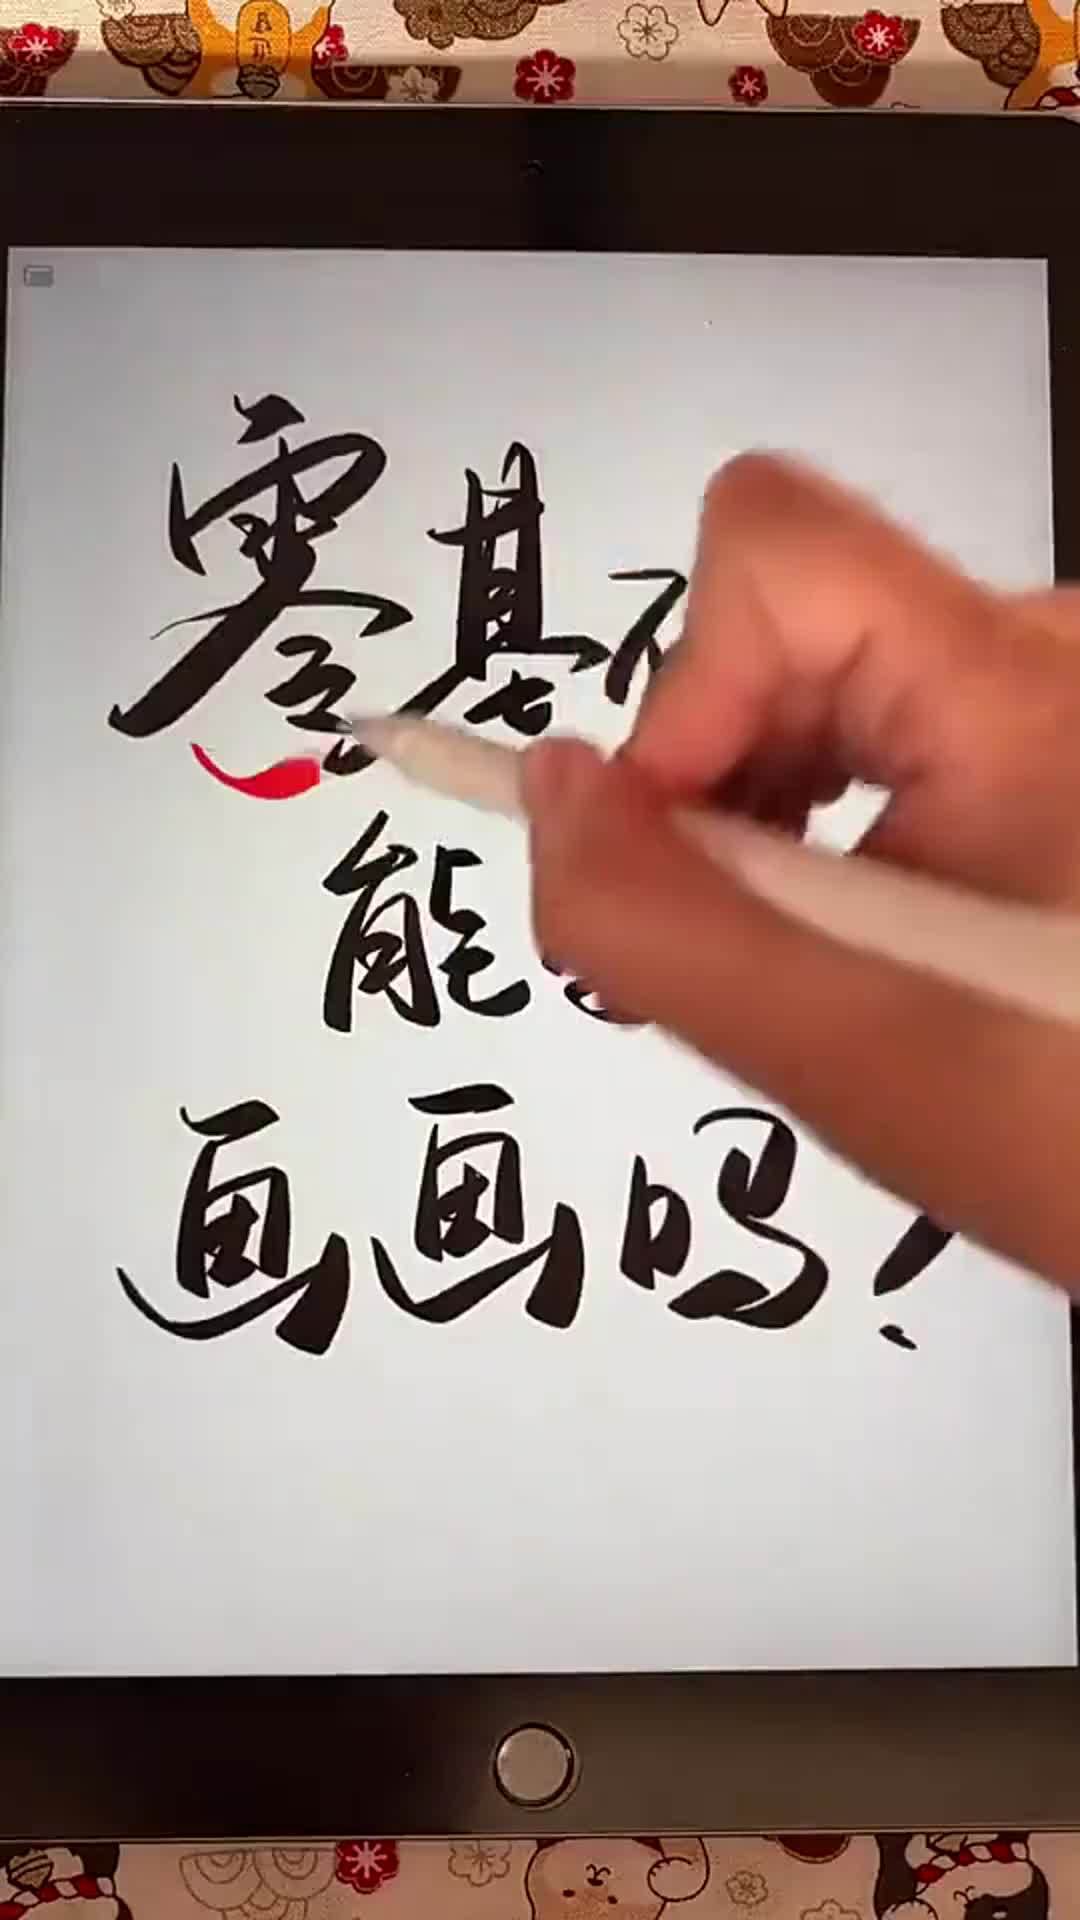 零基
能
画画吗！